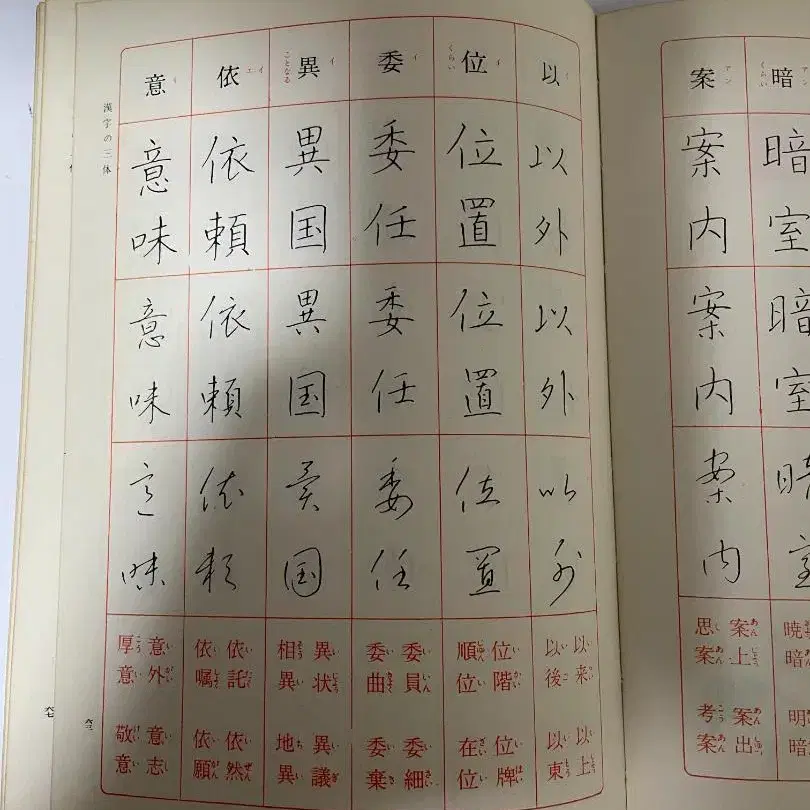 暗 アン くらい
暗室
暗室
案 アン
案内
案内
案内
案上
思案
案出
考案
以 イ
以外
以外
以外
以来
以後
以上
以東
位 イ くらい
位置
位置
位置
位階
順位
位牌
在位
委 イ
委任
委任
委任
委員
委曲
委細
委棄
異 イ ことなる
異国
異国
異国
異状
相異
異議
地異
依 イ エ
依頼
依頼
依頼
依託
依嘱
依然
依願
意 イ
意味
意味
意味
意外
厚意
意志
敬意
漢字の三体
六三
六七